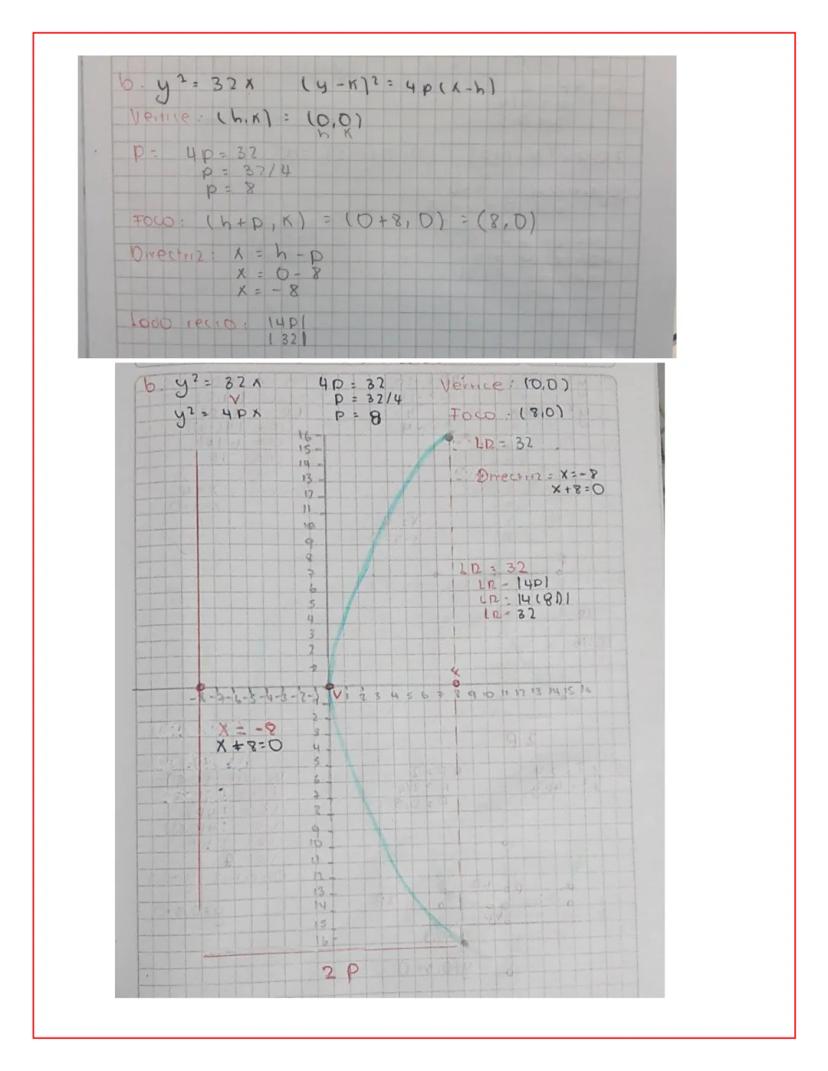 b. y² = 32x (y-k)² = 4p(x-h)
Vertice: (h,k) = (0,0)
h k
P = 4p = 32
p = 32/4
p = 8
Foco: (h+p, k) = (0+8, 0) = (8,0)
Directriz: x = h - p
x = 0 - 8
x = -8
Lado recto: |4p|
|32|
b. y² = 32x 4p = 32 Vertice: (0,0)
V
y² = 4px P = 32/4
P = 8 Foco: (8,0)
LR = 32
Directriz = x=-8
x+8=0
LR = 32
LR = |4p|
LR = |4(8)|
LR = 32
16
15
14
13
12
11
10
9
8
7
6
5
4
3
2
-8 -7 -6 -5 -4 -3 -2 -1 V 1 2 3 4 5 6 7 8 9 10 11 12 13 14 15 16
x = -8
x + 8 = 0
2
3
4
5
6
7
8
9
10
11
12
13
14
15
16
2 P